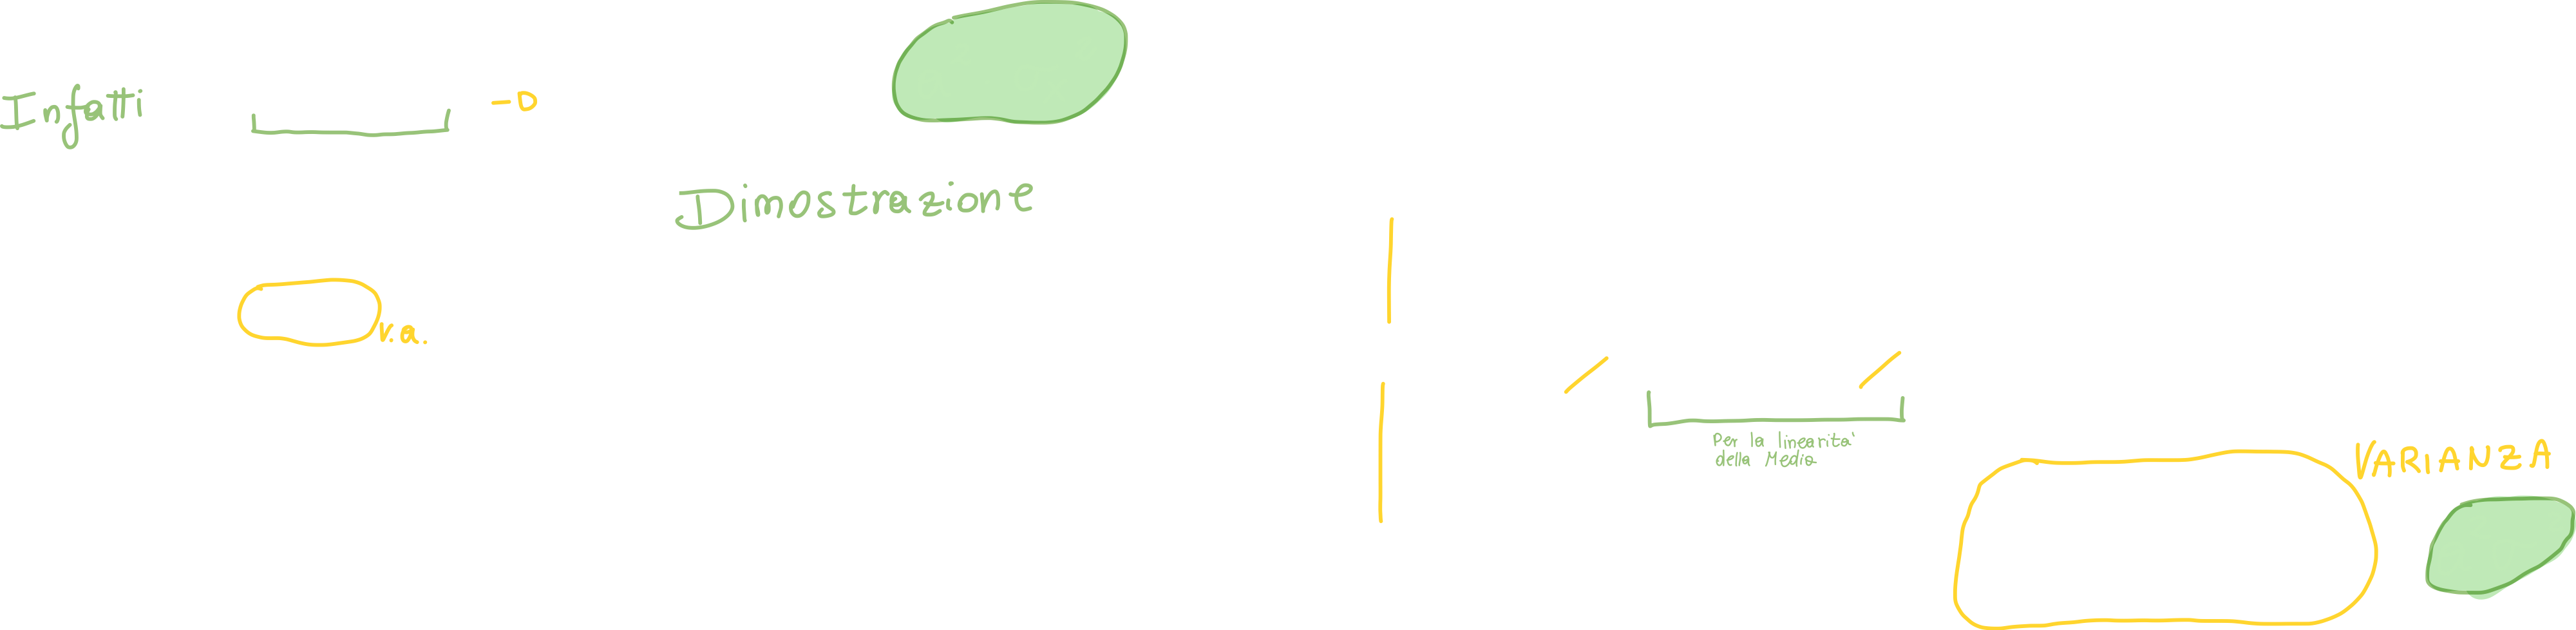 Infatti
Dimostrazione
r.a.
Per la linearità
della Media
VARIANZA